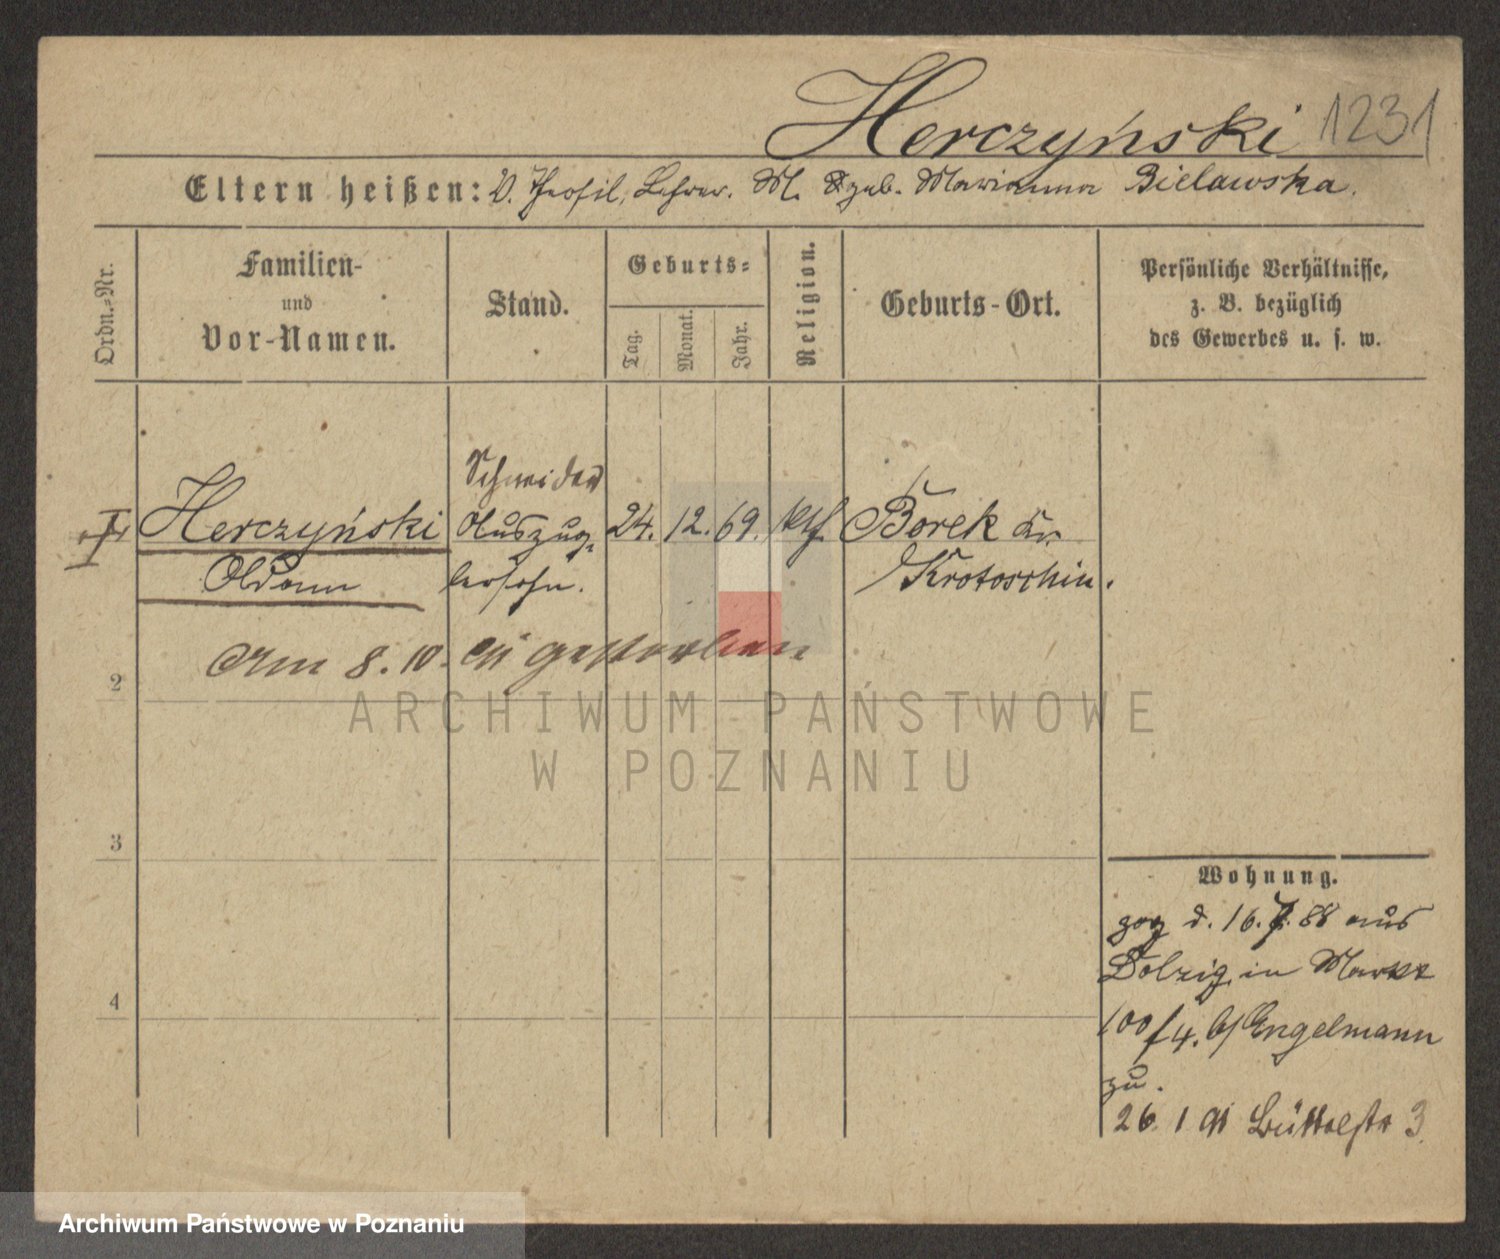 Herczyński 1231
Eltern heißen: V. Theofil, Lehrer. M. geb. Marianna Bielawska.
Ordn.-Nr.
Familien-
und
Vor-Namen.
Stand.
Geburts-
Tag.
Monat.
Jahr.
Religion.
Geburts-Ort.
Persönliche Verhältnisse,
z. B. bezüglich
des Gewerbes u. s. w.
Schneider
Herczyński Auszüg- 24. 12. 69. ktf. Borek Kr.
Adam lersohn. Krotoschin.
Am 8. 10. 91 gestorben
2
3
4
Wohnung.
zog d. 16. 7. 88 aus
Dolzig in Markt
100/4. b/ Engelmann
zu.
26. 1 91 Büttelstr 3
ARCHIWUM PAŃSTWOWE
W POZNANIU
Archiwum Państwowe w Poznaniu